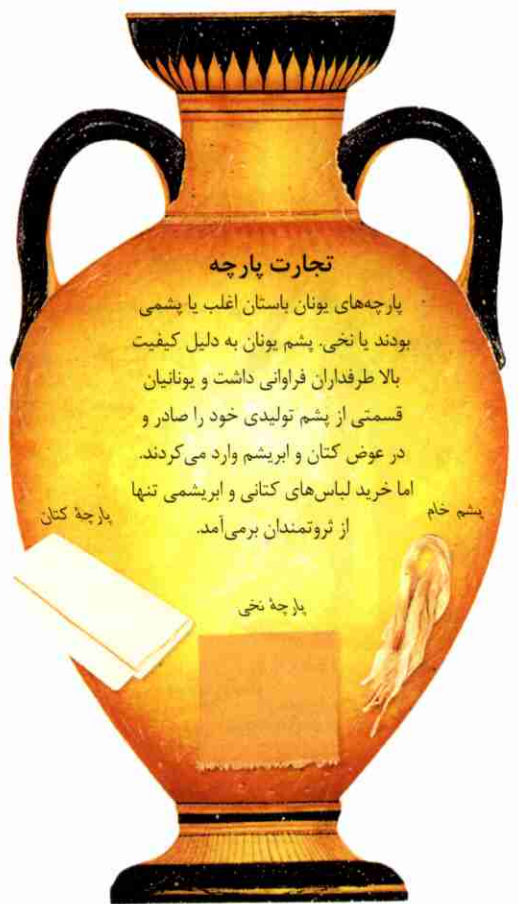 تجارت پارچه
پارچه‌های یونان باستان اغلب یا پشمی
بودند یا نخی. پشم یونان به دلیل کیفیت
بالا طرفداران فراوانی داشت و یونانیان
قسمتی از پشم تولیدی خود را صادر و
در عوض کتان و ابریشم وارد می‌کردند.
اما خرید لباس‌های کتانی و ابریشمی تنها
از ثروتمندان برمی‌آمد.
پشم خام
پارچهٔ کتان
پارچهٔ نخی